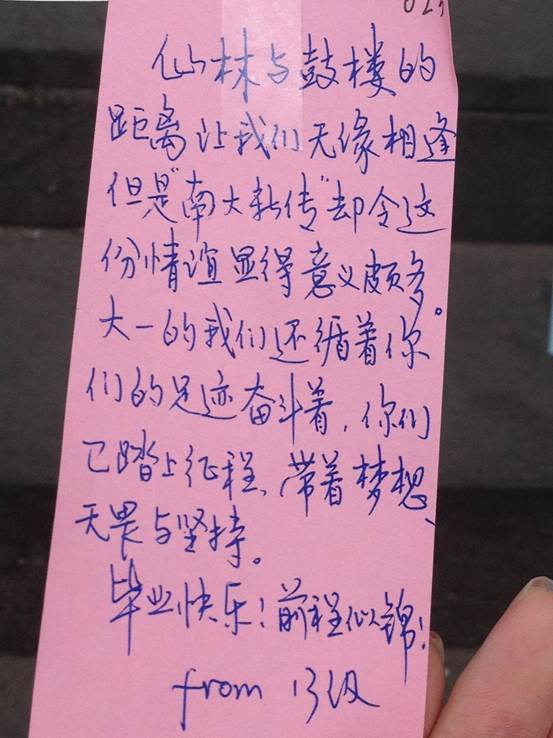 仙林与鼓楼的
距离让我们无缘相逢
但是"南大新传"却令这
份情谊显得意义颇多。
大一的我们还循着你
们的足迹奋斗着，你们
已踏上征程，带着梦想、
无畏与坚持。
毕业快乐！前程似锦！
from 13级